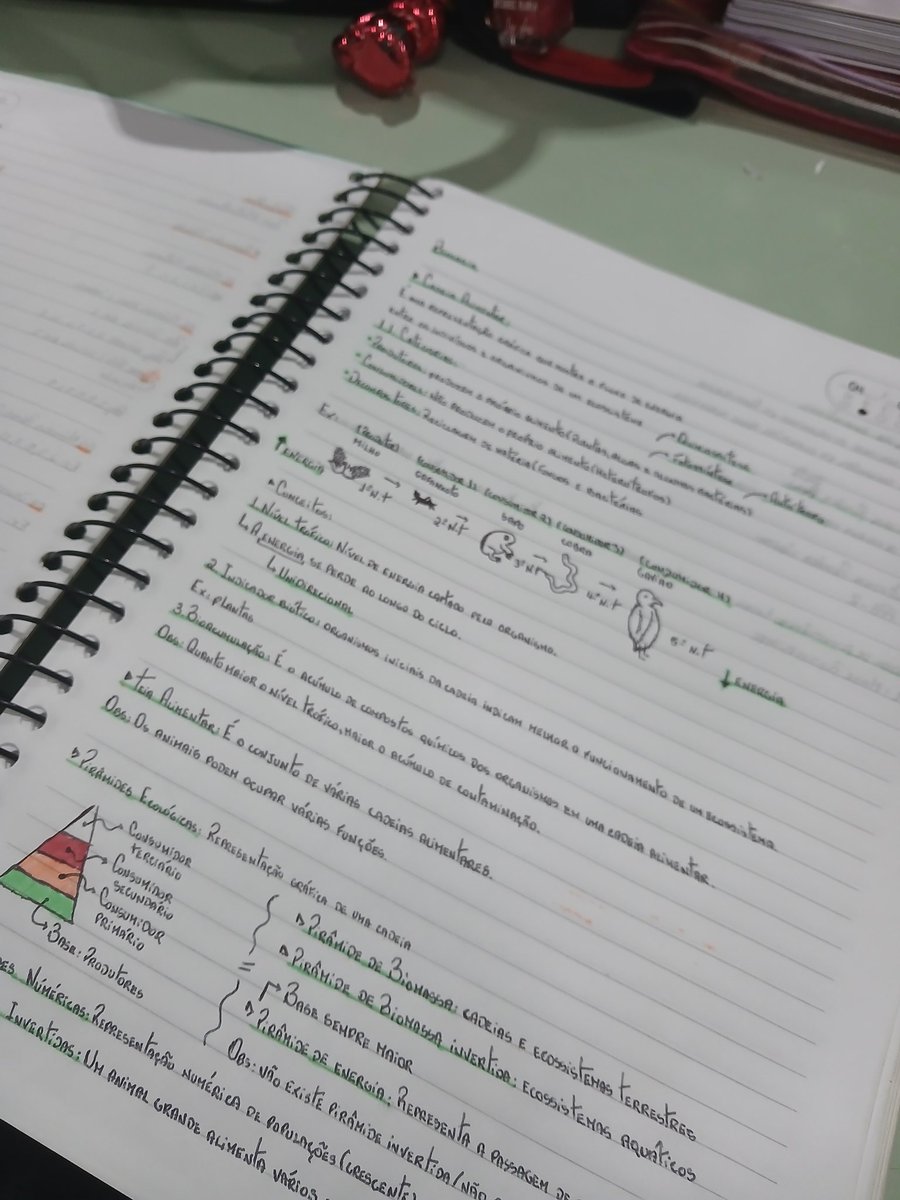 Cadeia Alimentar:
É uma representação gráfica que mostra o fluxo de energia
entre os indivíduos e organismos de um ecossistema
1.1 Categorias:
Produtores: produzem o próprio alimento (plantas, algas e algumas bactérias)
Consumidores: não produzem o próprio alimento (heterótrofos)
Decompositores: reciclagem de matéria (fungos e bactérias
Quimiossíntese
Fotossíntese
Autótrofos
Ex: (Produtor) (Consumidor 1) (Consumidor 2) (Consumidor 3) (Consumidor 4)
Milho Gafanhoto Sapo Cobra Gavião
↑ Energia 1º N.T → 2º N.T → 3º N.T → 4º N.T → 5º N.T
↓ Energia
Conceitos:
1. Nível trófico: Nível de energia captado pelo organismo.
↳ A energia se perde ao longo do ciclo.
↳ Unidirecional
2. Indicador biótico: organismos iniciais da cadeia indicam melhor o funcionamento de um ecossistema
Ex: plantas
3. Bioacumulação: É o acúmulo de compostos químicos dos organismos em uma cadeia alimentar.
Obs: Quanto maior o nível trófico, maior o acúmulo de contaminação.
Teia Alimentar: É o conjunto de várias cadeias alimentares.
Obs: Os animais podem ocupar várias funções.
Pirâmides Ecológicas: Representação gráfica de uma cadeia
Consumidor
terciário
Consumidor
secundário
Consumidor
primário
Base: Produtores
Pirâmide de Biomassa: cadeias e ecossistemas terrestres
Pirâmide de Biomassa invertida: ecossistemas aquáticos
Base sempre maior
Pirâmide de energia: Representa a passagem de
Obs: não existe pirâmide invertida/não
des Numéricas: Representação numérica de populações (crescente)
Invertidas: Um animal grande alimenta vários